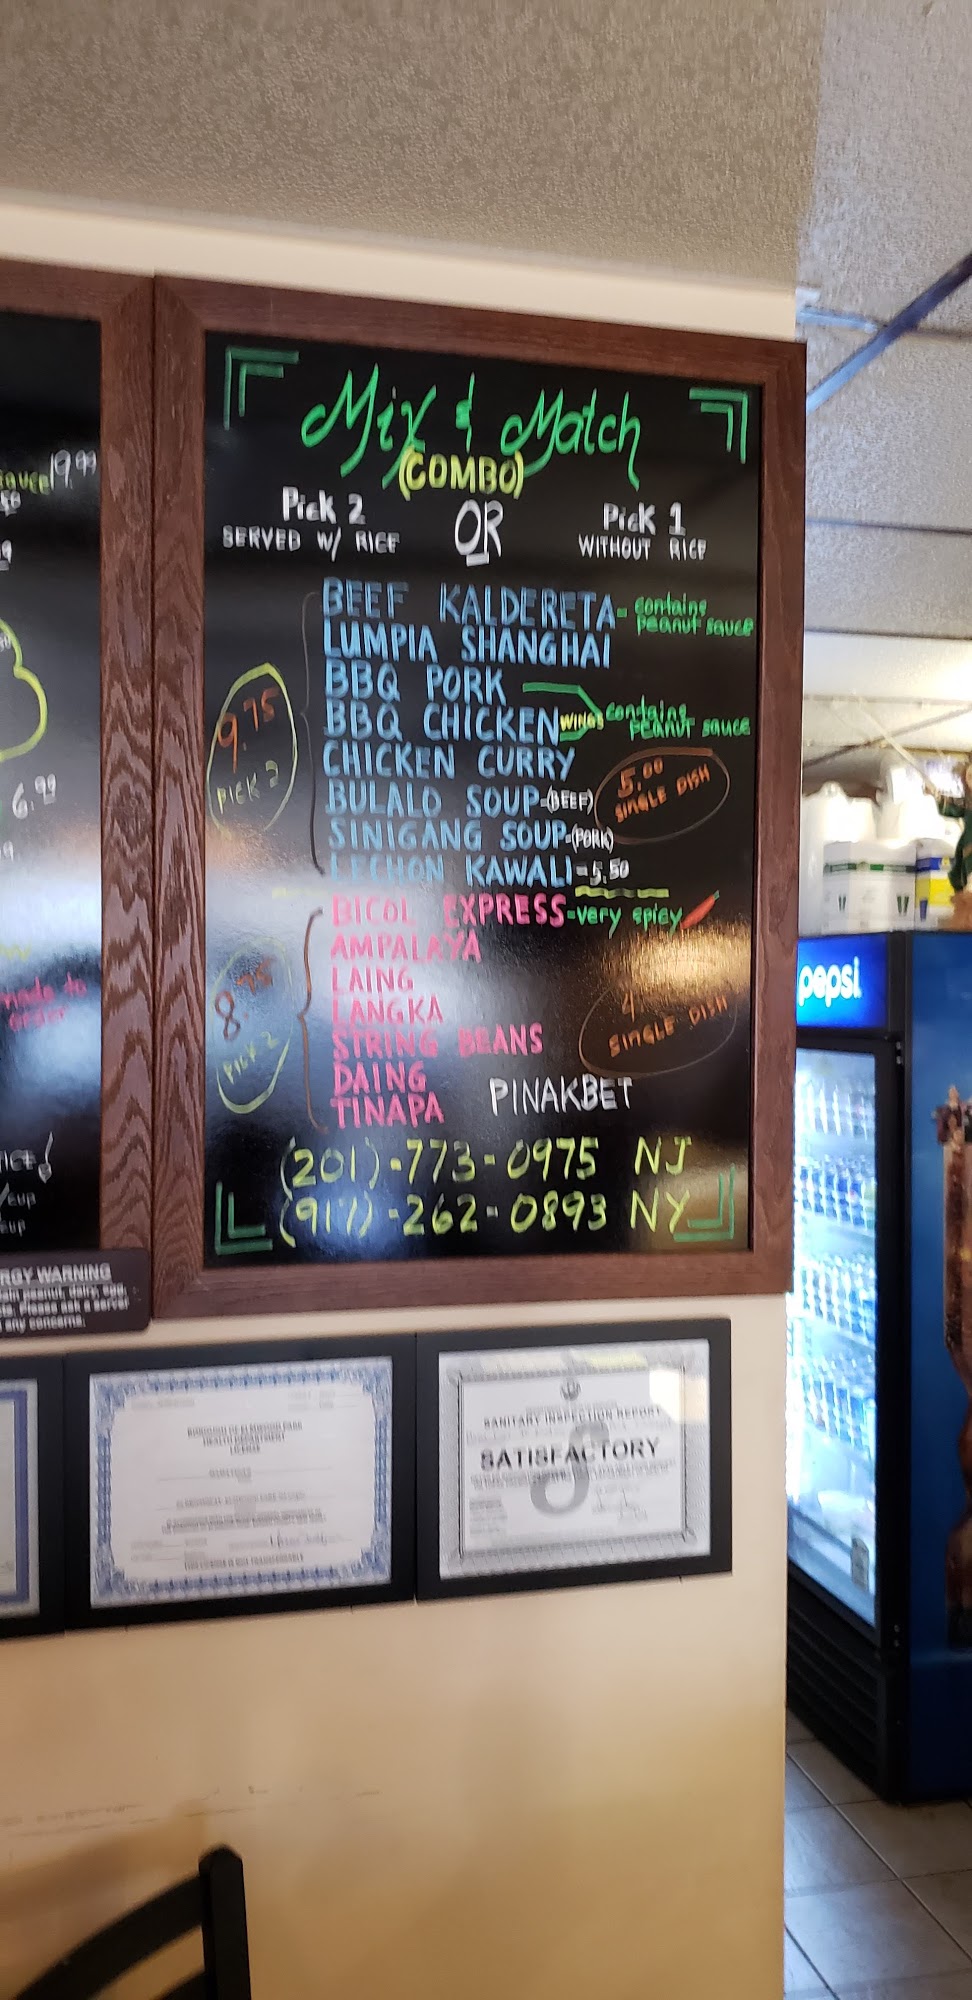 19.99
6.99
made to
order
/cup
RGY WARNING
any concerns.
Mix & Match
(COMBO)
Pick 2
SERVED W/ RICE
OR
Pick 1
WITHOUT RICE
BEEF KALDERETA - contains
peanut sauce
LUMPIA SHANGHAI
BBQ PORK
BBQ CHICKEN WINGS contains
peanut sauce
CHICKEN CURRY
BULALO SOUP-(BEEF)
SINIGANG SOUP-(PORK)
LECHON KAWALI = 5.50
9.75
PICK 2
5.00
SINGLE DISH
BICOL EXPRESS=very spicy
AMPALAYA
LAING
LANGKA
STRING BEANS
DAING
TINAPA
PINAKBET
8.75
PICK 2
SINGLE DISH
(201)-773-0975 NJ
(917)-262-0893 NY
HEALTH DEPARTMENT
LICENSE
SANITARY INSPECTION REPORT
SATISFACTORY
S
pepsi